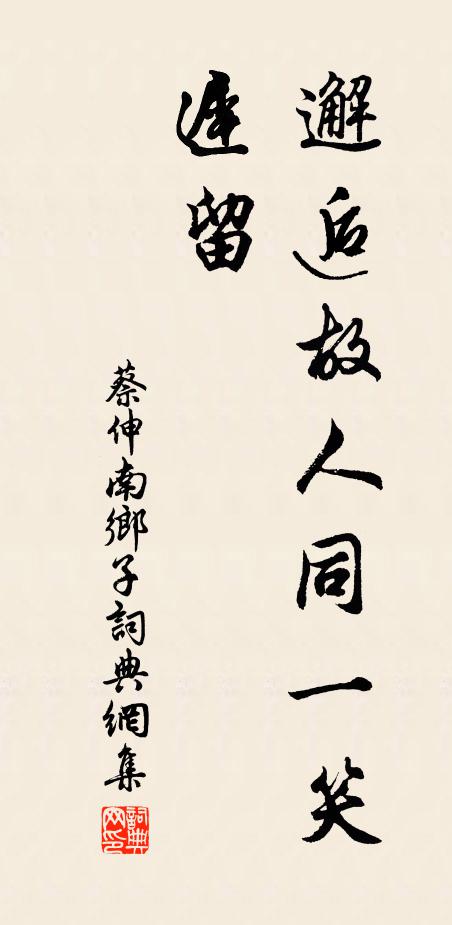 邂逅故人同一笑
遲留
蔡伸南鄉子詞典網集
詞典
网印